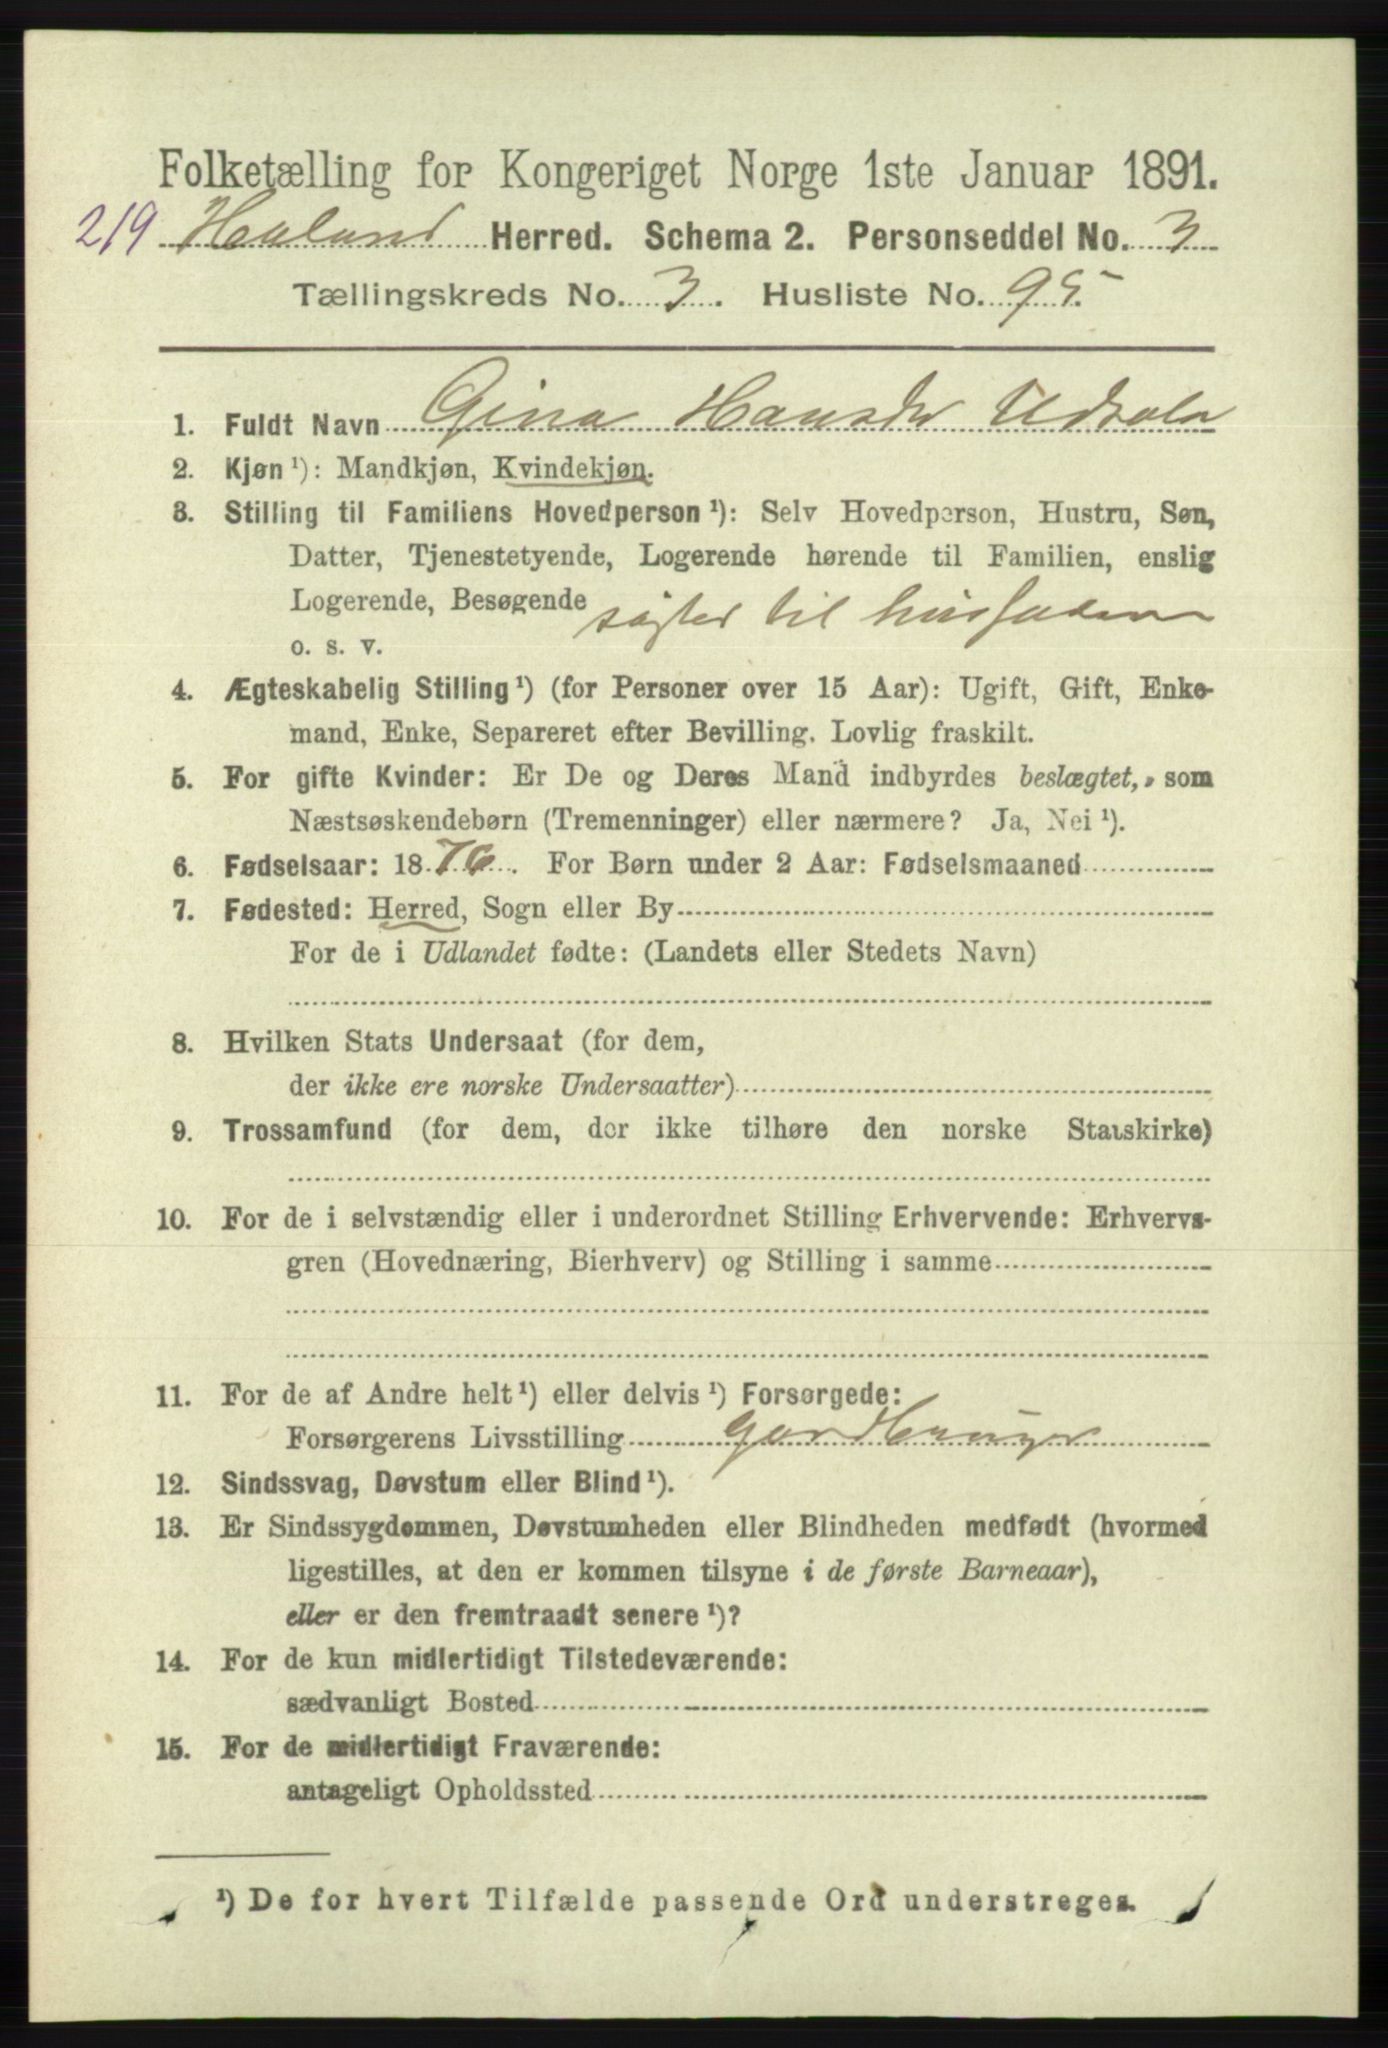 Folketælling for Kongeriget Norge 1ste Januar 1891.
219 Haaland Herred. Schema 2. Personseddel No. 3
Tællingskreds No. 3. Husliste No. 95.
1. Fuldt Navn Gina Hansdr Udsola
2. Kjøn ¹): Mandkjøn, Kvindekjøn.
3. Stilling til Familiens Hovedperson ¹): Selv Hovedperson, Hustru, Søn,
Datter, Tjenestetyende, Logerende hørende til Familien, enslig
Logerende, Besøgende søster til husfaderen
o. s. v.
4. Ægteskabelig Stilling ¹) (for Personer over 15 Aar): Ugift, Gift, Enke-
mand, Enke, Separeret efter Bevilling. Lovlig fraskilt.
5. For gifte Kvinder: Er De og Deres Mand indbyrdes beslægtet, som
Næstsøskendebørn (Tremenninger) eller nærmere? Ja, Nei ¹).
6. Fødselsaar: 1876. For Børn under 2 Aar: Fødselsmaaned
7. Fødested: Herred, Sogn eller By
For de i Udlandet fødte: (Landets eller Stedets Navn)
8. Hvilken Stats Undersaat (for dem,
der ikke ere norske Undersaatter)
9. Trossamfund (for dem, der ikke tilhøre den norske Statskirke)
10. For de i selvstændig eller i underordnet Stilling Erhvervende: Erhvervs-
gren (Hovednæring, Bierhverv) og Stilling i samme
11. For de af Andre helt ¹) eller delvis ¹) Forsørgede:
Forsørgerens Livsstilling
12. Sindssvag, Døvstum eller Blind ¹).
13. Er Sindssygdommen, Døvstumheden eller Blindheden medfødt (hvormed
ligestilles, at den er kommen tilsyne i de første Barneaar),
eller er den fremtraadt senere ¹)?
14. For de kun midlertidigt Tilstedeværende:
sædvanligt Bosted
15. For de midlertidigt Fraværende:
antageligt Opholdssted
¹) De for hvert Tilfælde passende Ord understreges.